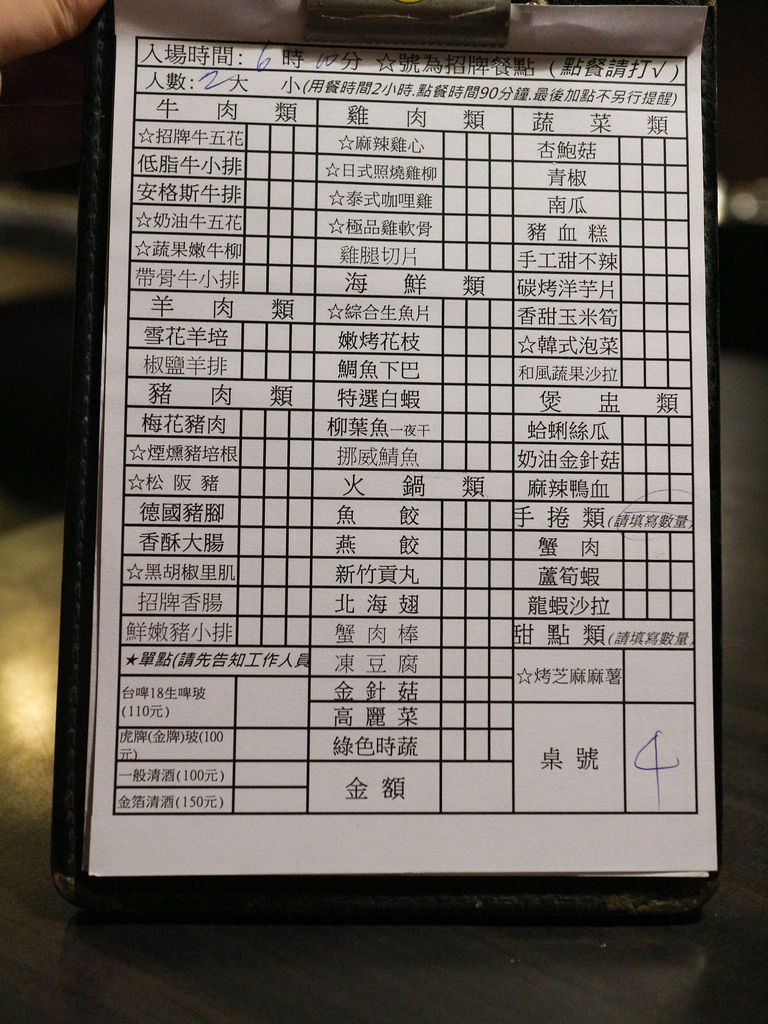 入場時間: 6時10分 ☆號為招牌餐點 (點餐請打√)
人數: 2大 小(用餐時間2小時.點餐時間90分鐘.最後加點不另行提醒)
牛肉類
☆招牌牛五花
低脂牛小排
安格斯牛排
☆奶油牛五花
☆蔬果嫩牛柳
帶骨牛小排
羊肉類
雪花羊培
椒鹽羊排
豬肉類
梅花豬肉
☆煙燻豬培根
☆松阪豬
德國豬腳
香酥大腸
☆黑胡椒里肌
招牌香腸
鮮嫩豬小排
★單點(請先告知工作人員
台啤18生啤玻
(110元)
虎牌(金牌)玻(100
元)
一般清酒(100元)
金箔清酒(150元)
雞肉類
☆麻辣雞心
☆日式照燒雞柳
☆泰式咖哩雞
☆極品雞軟骨
雞腿切片
海鮮類
☆綜合生魚片
嫩烤花枝
鯛魚下巴
特選白蝦
柳葉魚一夜干
挪威鯖魚
火鍋類
魚餃
燕餃
新竹貢丸
北海翅
蟹肉棒
凍豆腐
金針菇
高麗菜
綠色時蔬
金額
蔬菜類
杏鮑菇
青椒
南瓜
豬血糕
手工甜不辣
碳烤洋芋片
香甜玉米筍
☆韓式泡菜
和風蔬果沙拉
煲盅類
蛤蜊絲瓜
奶油金針菇
麻辣鴨血
手捲類(請填寫數量)
蟹肉
蘆筍蝦
龍蝦沙拉
甜點類(請填寫數量)
☆烤芝麻麻薯
桌號 4